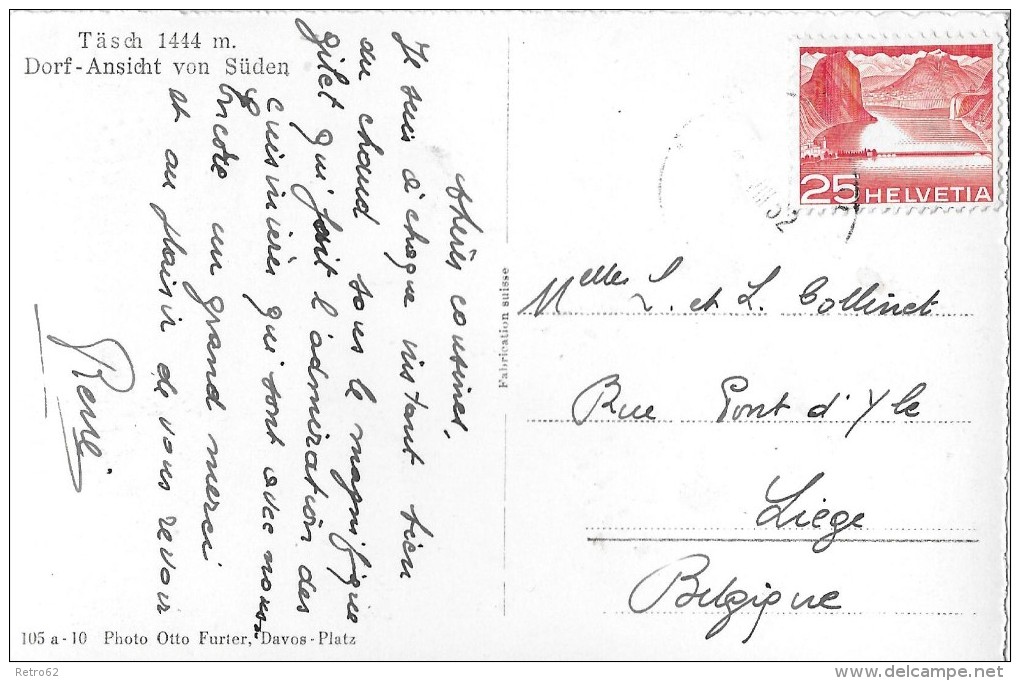 Täsch 1444 m.
Dorf-Ansicht von Süden
Chères cousines,
Je suis à chaque instant bien
au chaud sous le magnifique
gilet qui fait l'admiration des
cuisinières qui sont avec nous.
Encore un grand merci
et au plaisir de vous revoir
René
105 a-10 Photo Otto Furter, Davos-Platz
Fabrication suisse
25 HELVETIA
52
Melles L. et L. Collinet
Rue Pont d'Yle
Liège
Belgique
Retro62
delcampe.net